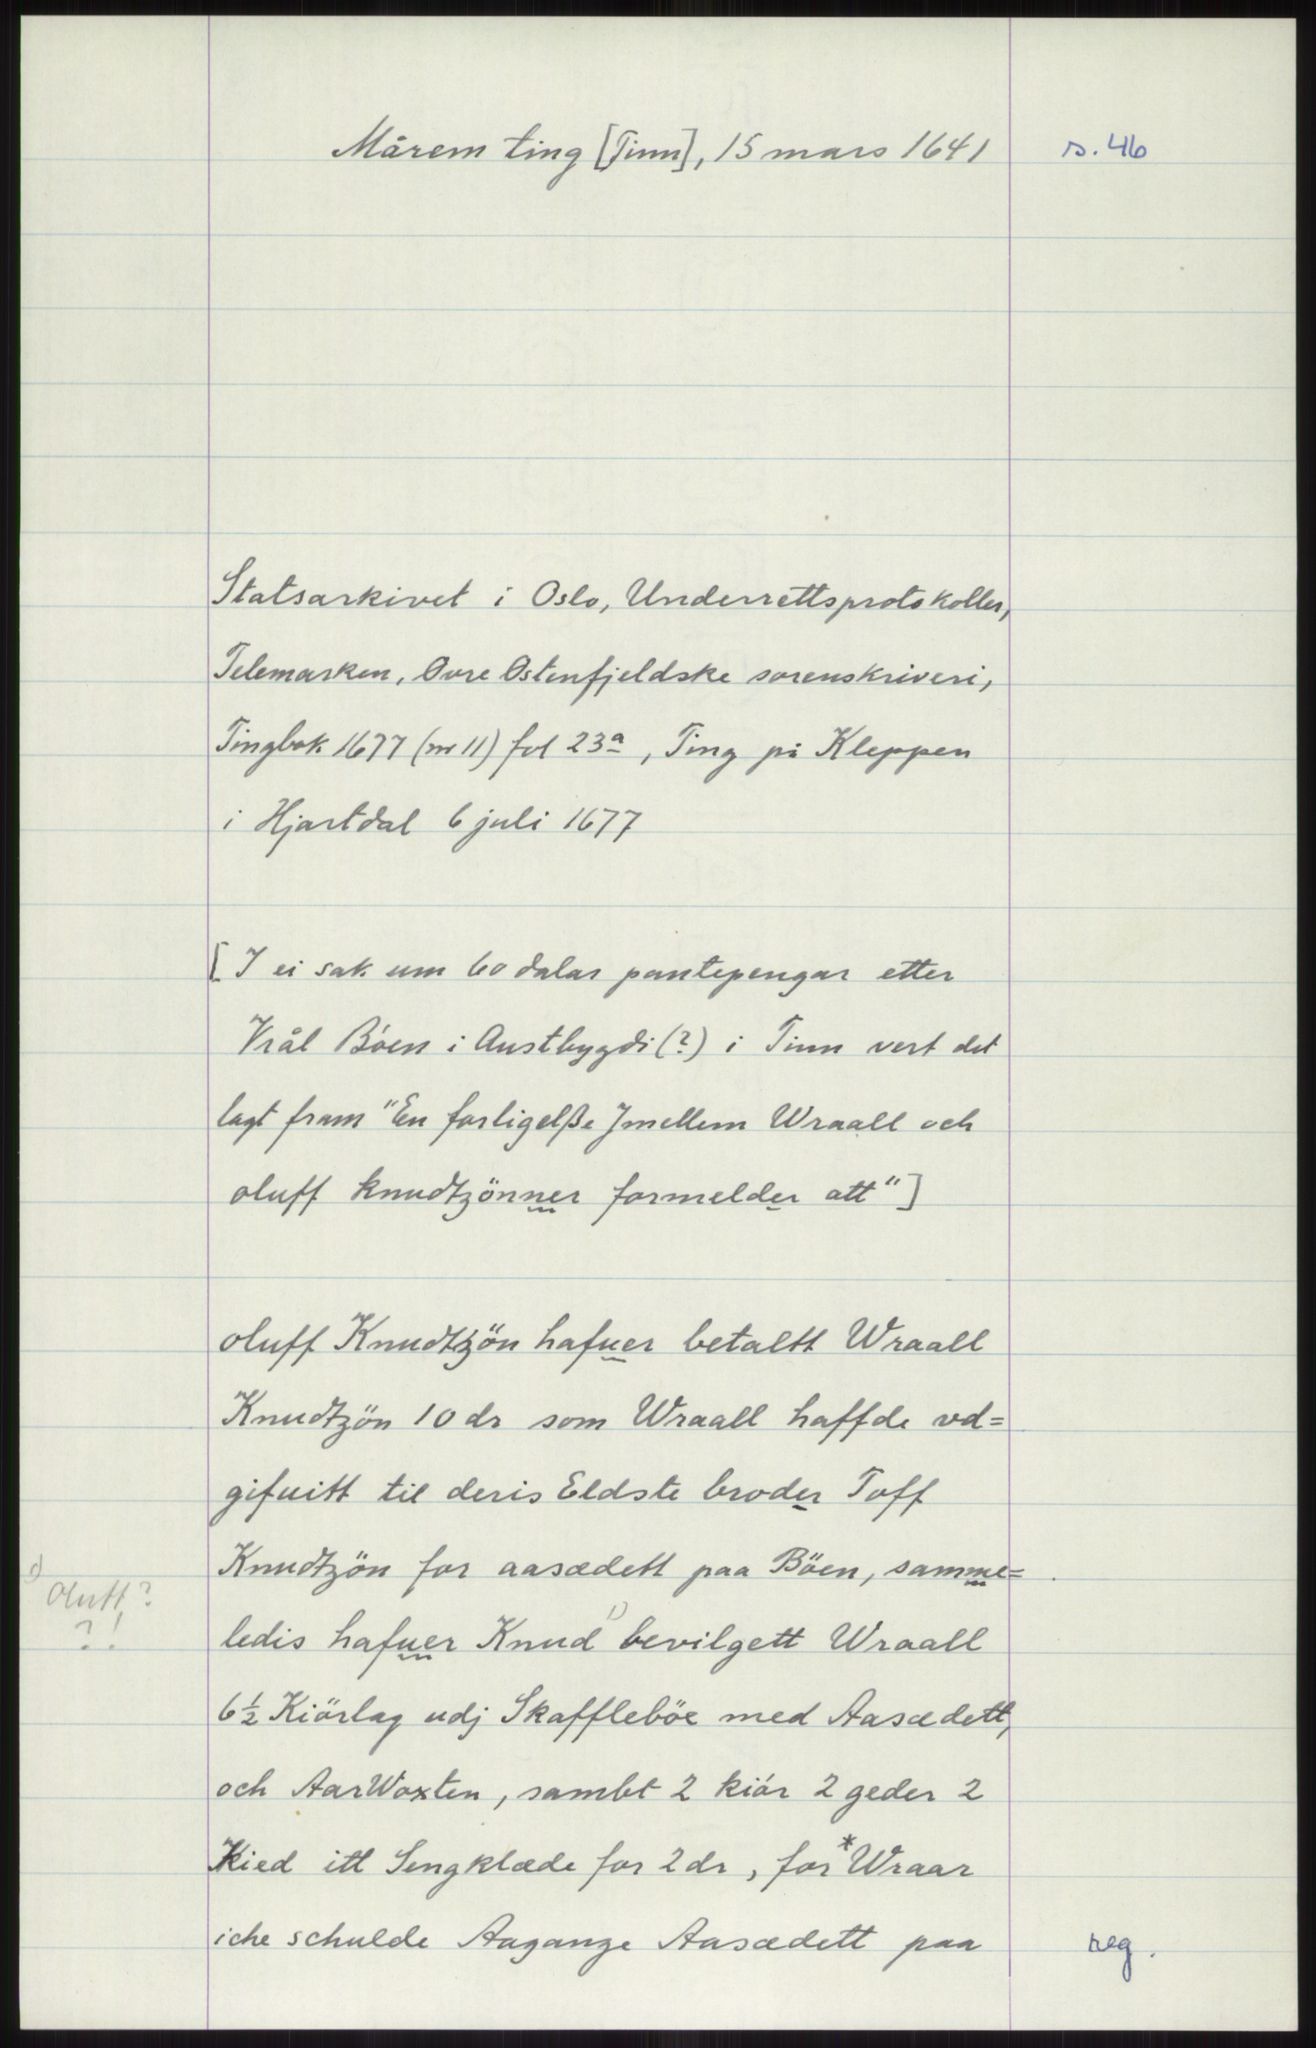 Mårem ting [Tinn], 15 mars 1641
s. 46
Statsarkivet i Oslo, Underrettsprotokoller,
Telemarken, Øvre Østenfjeldske sorenskriveri,
Tingbok 1677 (nr 11) fol 23a, Ting på Kleppen
i Hjartdal 6 juli 1677
[I ei sak um 60 dalar pantepengar etter
Vrål Böen i Austbygdi (?) i Tinn vert det
lagt fram "En forligelße Jmellem Wraall och
oluff knudtzönner formelder att"]
oluff Knudtzön hafuer betaltt Wraall
Knudtzön 10 dr som Wraall haffde vd=
gifuitt til deris Eldste broder Toff
Knudtzön for aasædett paa Böen, samme=
1) Oluff?
?!
ledis hafuer Knud 1) bevilgett Wraall
6½ Kiörlag udj Skaffleböe med Aasædett,
och AarWoxten, sambt 2 kiör 2 geder 2
Kied itt Sengklæde for 2 dr, for *Wraar
iche schulde Aagange Aasædett paa
reg.